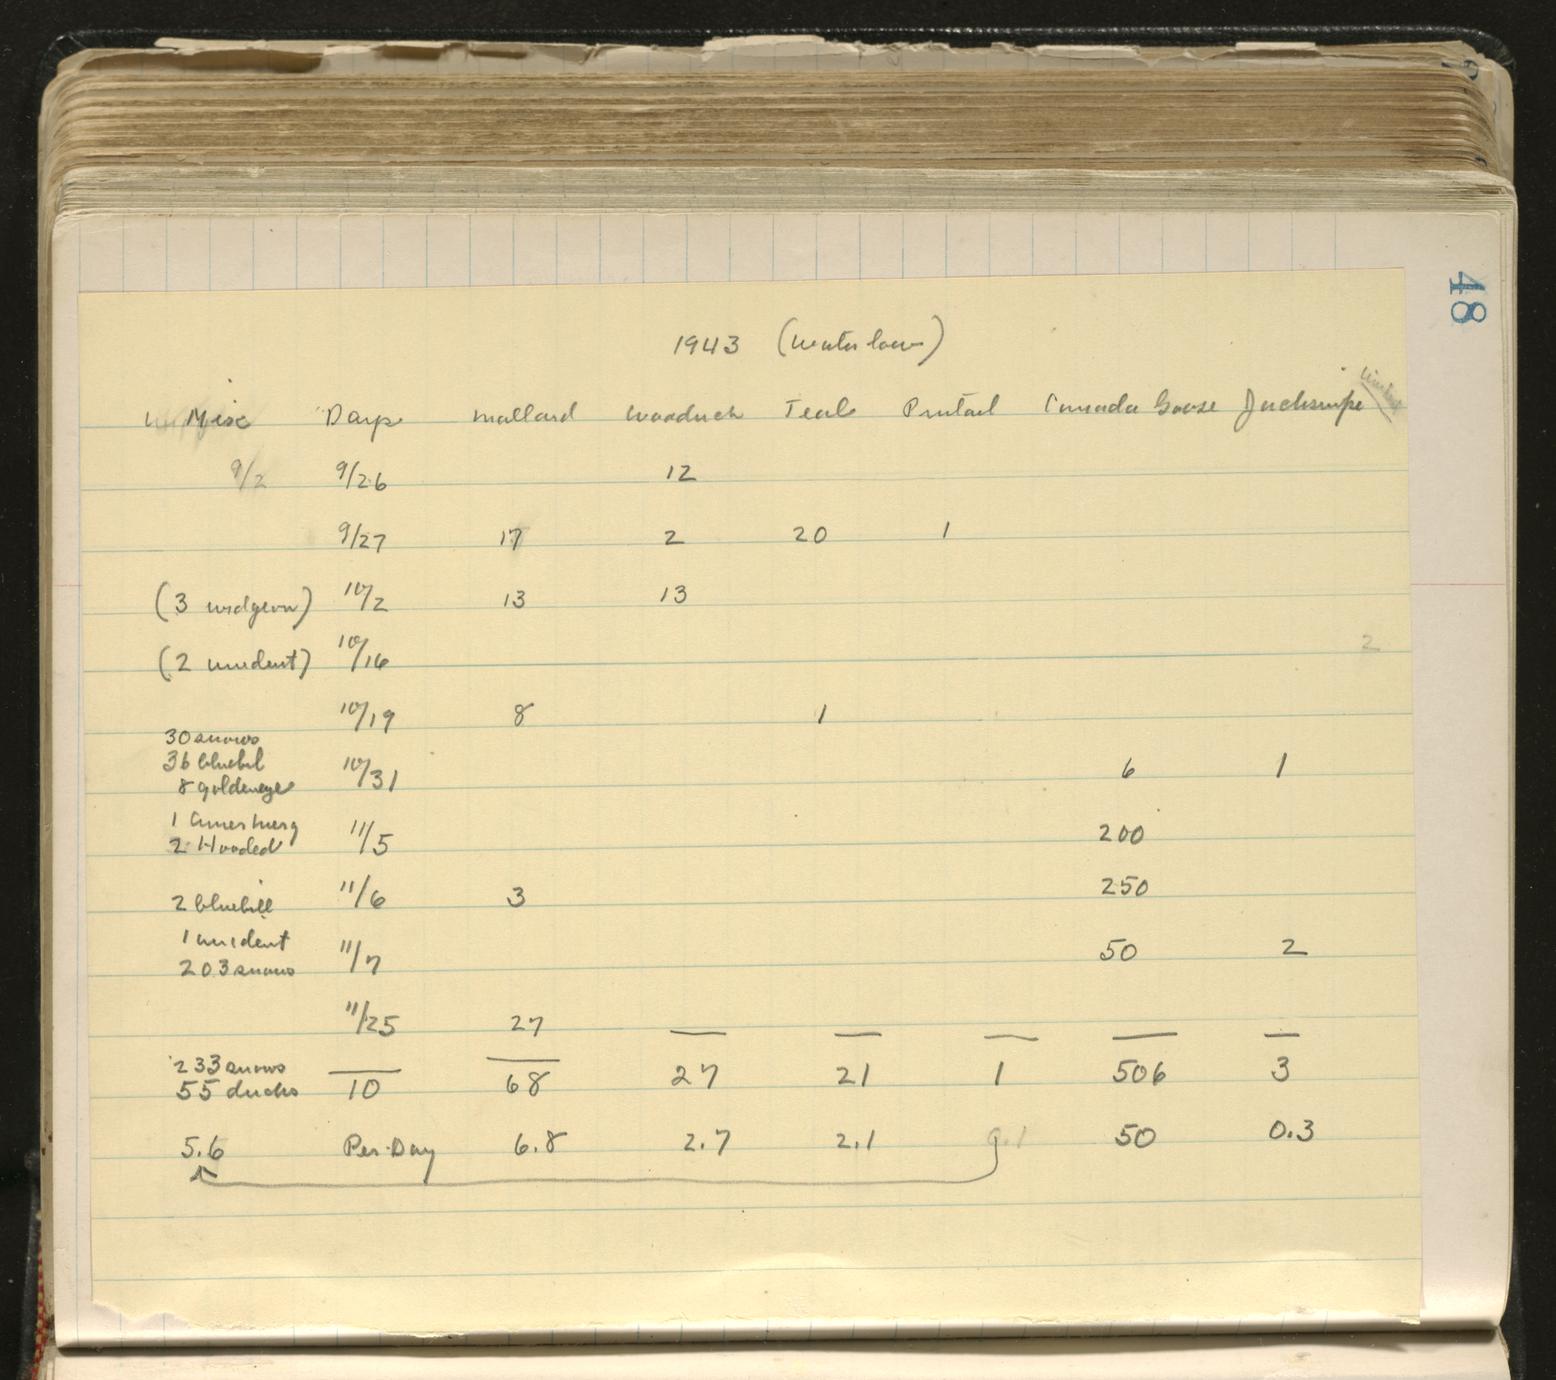 48
1943 (water low)
Misc Days Mallard Woodduck Teal Pintail Canada Goose Jacksnipe
9/2 9/26 12
9/27 17 2 20 1
(3 widgeon) 10/2 13 13
(2 unident) 10/16 2
10/19 8 1
30 snows
36 bluebill
8 goldeneye 10/31 6 1
1 Amer Merg
2 Hooded 11/5 200
2 bluebill 11/6 3 250
1 unident
203 snows 11/7 50 2
11/25 27
233 snows
55 ducks 10 68 27 21 1 506 3
5.6 Per Day 6.8 2.7 2.1 0.1 50 0.3